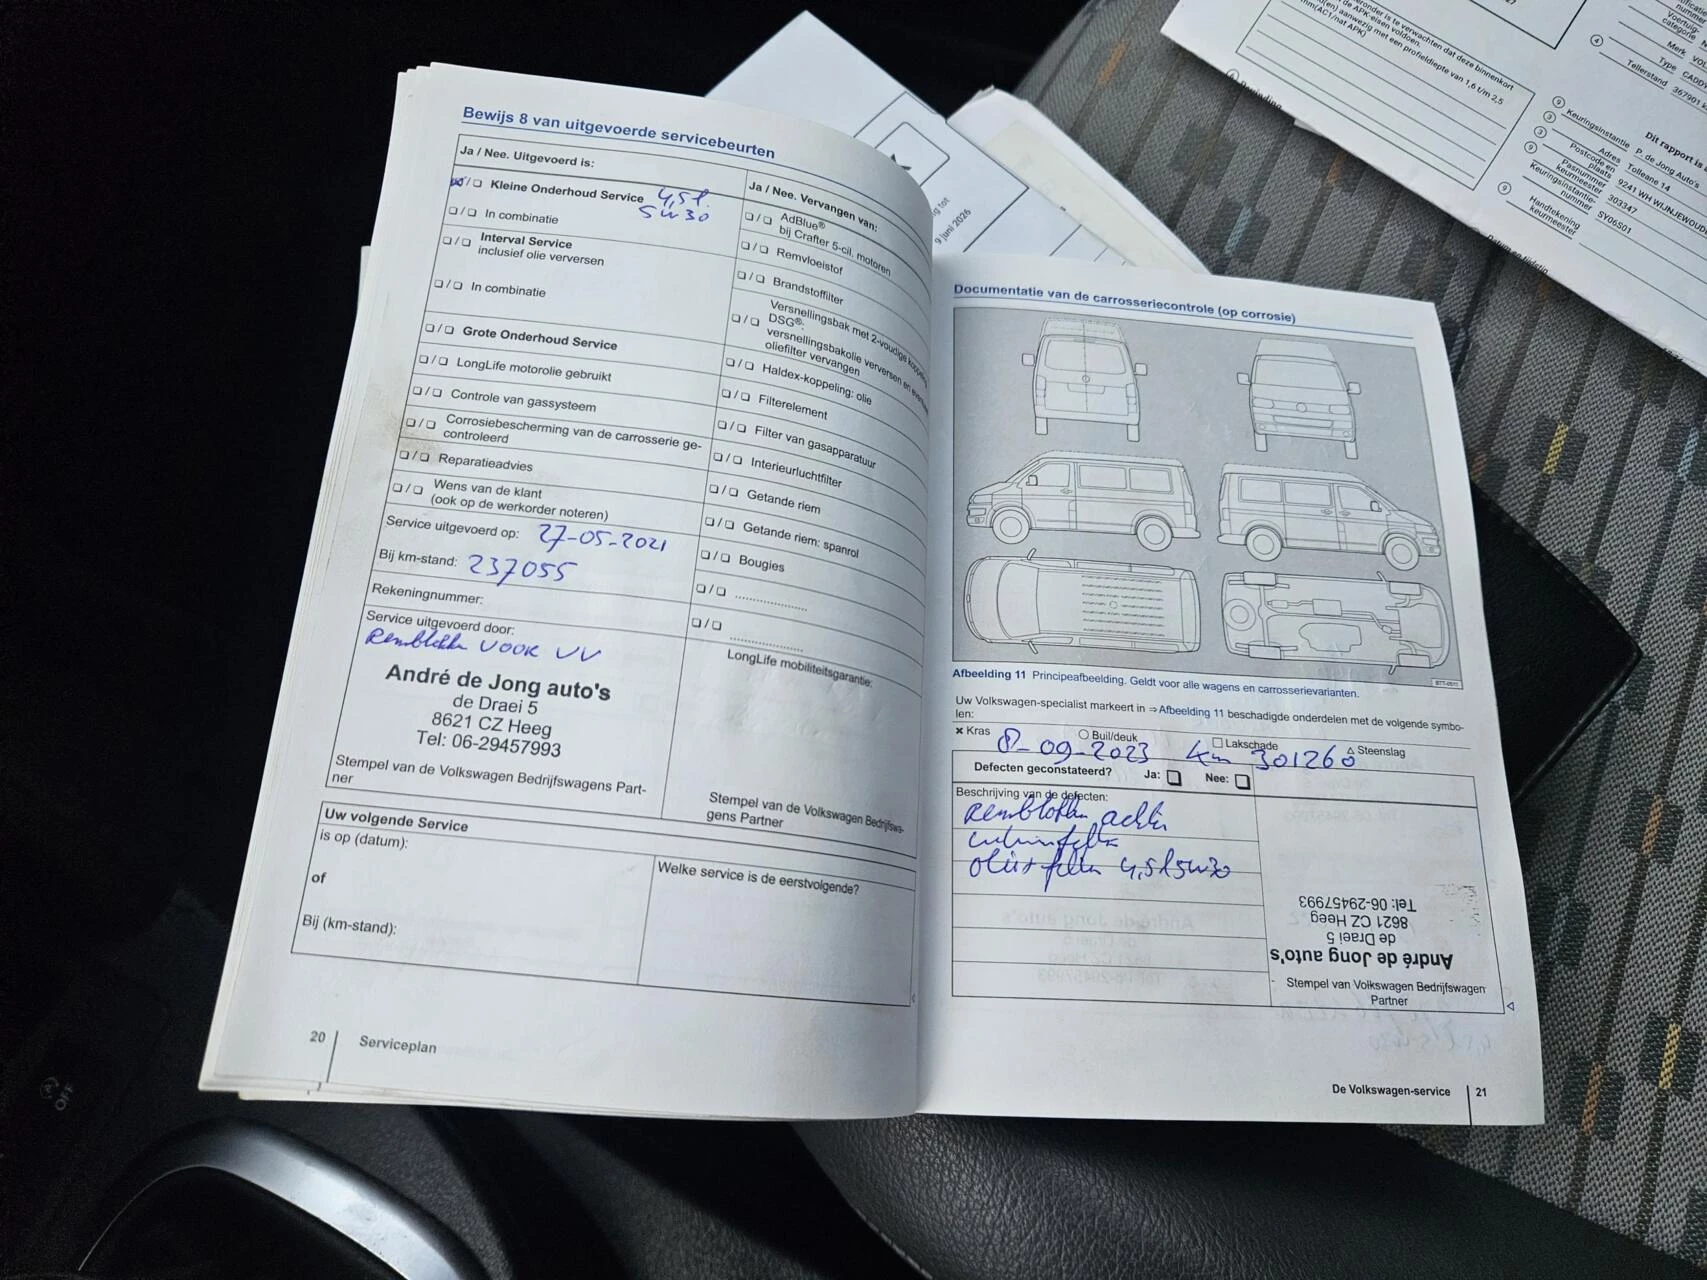 Bewijs 8 van uitgevoerde servicebeurten
Ja / Nee. Uitgevoerd is:
Kleine Onderhoud Service 4,5 l.
5W30
In combinatie
Interval Service
inclusief olie verversen
In combinatie
Grote Onderhoud Service
LongLife motorolie gebruikt
Controle van gassysteem
Corrosiebescherming van de carrosserie ge-
controleerd
Reparatieadvies
Wens van de klant
(ook op de werkorder noteren)
Service uitgevoerd op: 27-05-2021
Bij km-stand: 237055
Rekeningnummer:
Service uitgevoerd door:
Remblokken VOOR VV
André de Jong auto's
de Draei 5
8621 CZ Heeg
Tel: 06-29457993
Stempel van de Volkswagen Bedrijfswagens Part-
ner
Ja / Nee. Vervangen van:
AdBlue®
bij Crafter 5-cil. motoren
Remvloeistof
Brandstoffilter
Versnellingsbak met 2-voudige
DSG®:
versnellingsbakolie verversen en
oliefilter vervangen
Haldex-koppeling: olie
Filterelement
Filter van gasapparatuur
Interieurluchtfilter
Getande riem
Getande riem: spanrol
Bougies
LongLife mobiliteitsgarantie:
Stempel van de Volkswagen Bedrijfswa-
gens Partner
Uw volgende Service
is op (datum):
of
Bij (km-stand):
Welke service is de eerstvolgende?
20 Serviceplan
Documentatie van de carrosseriecontrole (op corrosie)
Afbeelding 11 Principeafbeelding. Geldt voor alle wagens en carrosserievarianten.
Uw Volkswagen-specialist markeert in ⇒ Afbeelding 11 beschadigde onderdelen met de volgende symbo-
len:
Kras Buil/deuk Lakschade Steenslag
8-09-2023 km 301260
Defecten geconstateerd? Ja: Nee:
Beschrijving van de defecten:
Remblokken achter
oliefilter 4,5l 5W30
André de Jong auto's
de Draei 5
8621 CZ Heeg
Tel: 06-29457993
Stempel van Volkswagen Bedrijfswagen
Partner
De Volkswagen-service 21
9 juni 2026
Merk
Type CADDY
Tellerstand 367901
Dit rapport is
Keuringsinstantie P. de Jong Auto's
Adres Tolleane 14
Postcode en
plaats 9241 WH WIJNJEWOUDE
Pasnummer
keurmeester 303347
Keuringsinstantie-
nummer SY06S01
Handtekening
keurmeester
OFF